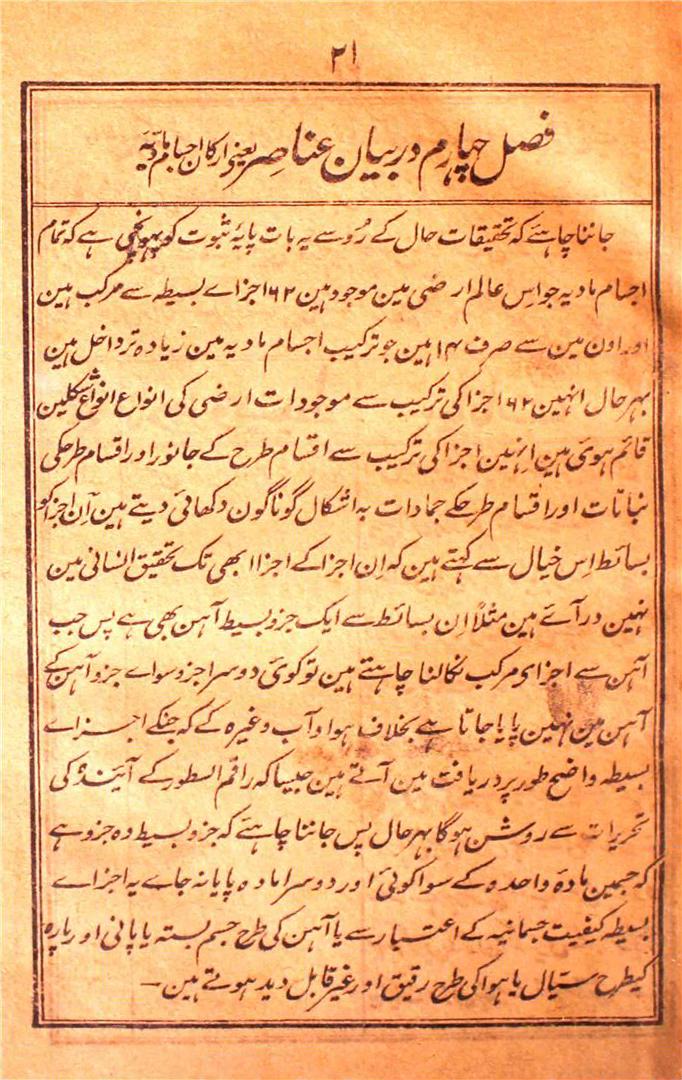 ۲۱
فصل چہارم در بیان عناصر یعنی ارکان اجسام مادیہ
جاننا چاہئے کہ تحقیقات حال کے رُو سے یہ بات پایۂ ثبوت کو پہونچی ہے کہ تمام
اجسام مادیہ جو اِس عالم ارضی مین موجود ہین ۶۲ اجزاے بسیطہ سے مرکب ہین
اور اون مین سے صرف ۱۴ ہین جو ترکیب اجسام مادیہ مین زیادہ تر داخل ہین
بہرحال انہین ۶۲ اجزا کی ترکیب سے موجودات ارضی کی انواع انواع شکلین
قائم ہوئی ہین اِنہین اجزا کی ترکیب سے اقسام طرح کے جانور اور اقسام طرحکی
نباتات اور اقسام طرحکے جمادات بہ اشکال گوناگون دکھائی دیتے ہین اِن اجزا کو
بسائط اِس خیال سے کہتے ہین کہ اِن اجزا کے اجزا ابھی تک تحقیق انسانی مین
نہین در آئے ہین مثلاً اِن بسائط سے ایک جزو بسیط آہن بھی ہے پس جب
آہن سے اجزای مرکب نکالنا چاہتے ہین تو کوئی دوسرا جزو سواے جزو آہن کے
آہن مین نہین پایا جاتا ہے بخلاف ہوا و آب وغیرہ کے کہ جنکے اجزاے
بسیطہ واضح طور پر دریافت مین آتے ہین جیسا کہ راقم السطور کے آیندہ کی
تحریرات سے روشن ہوگا بہرحال پس جاننا چاہئے کہ جزو بسیط وہ جزو ہے
کہ جسمین مادۂ واحدہ کے سوا کوئی اور دوسرا مادہ پایا نہ جاے یہ اجزاے
بسیطہ کیفیت جسمانیہ کے اعتبار سے یا آہن کی طرح جسم بستہ یا پانی اور پارہ
کیطرح سیّال یا ہوا کی طرح رقیق اور غیر قابل دید ہوتے ہین ۔